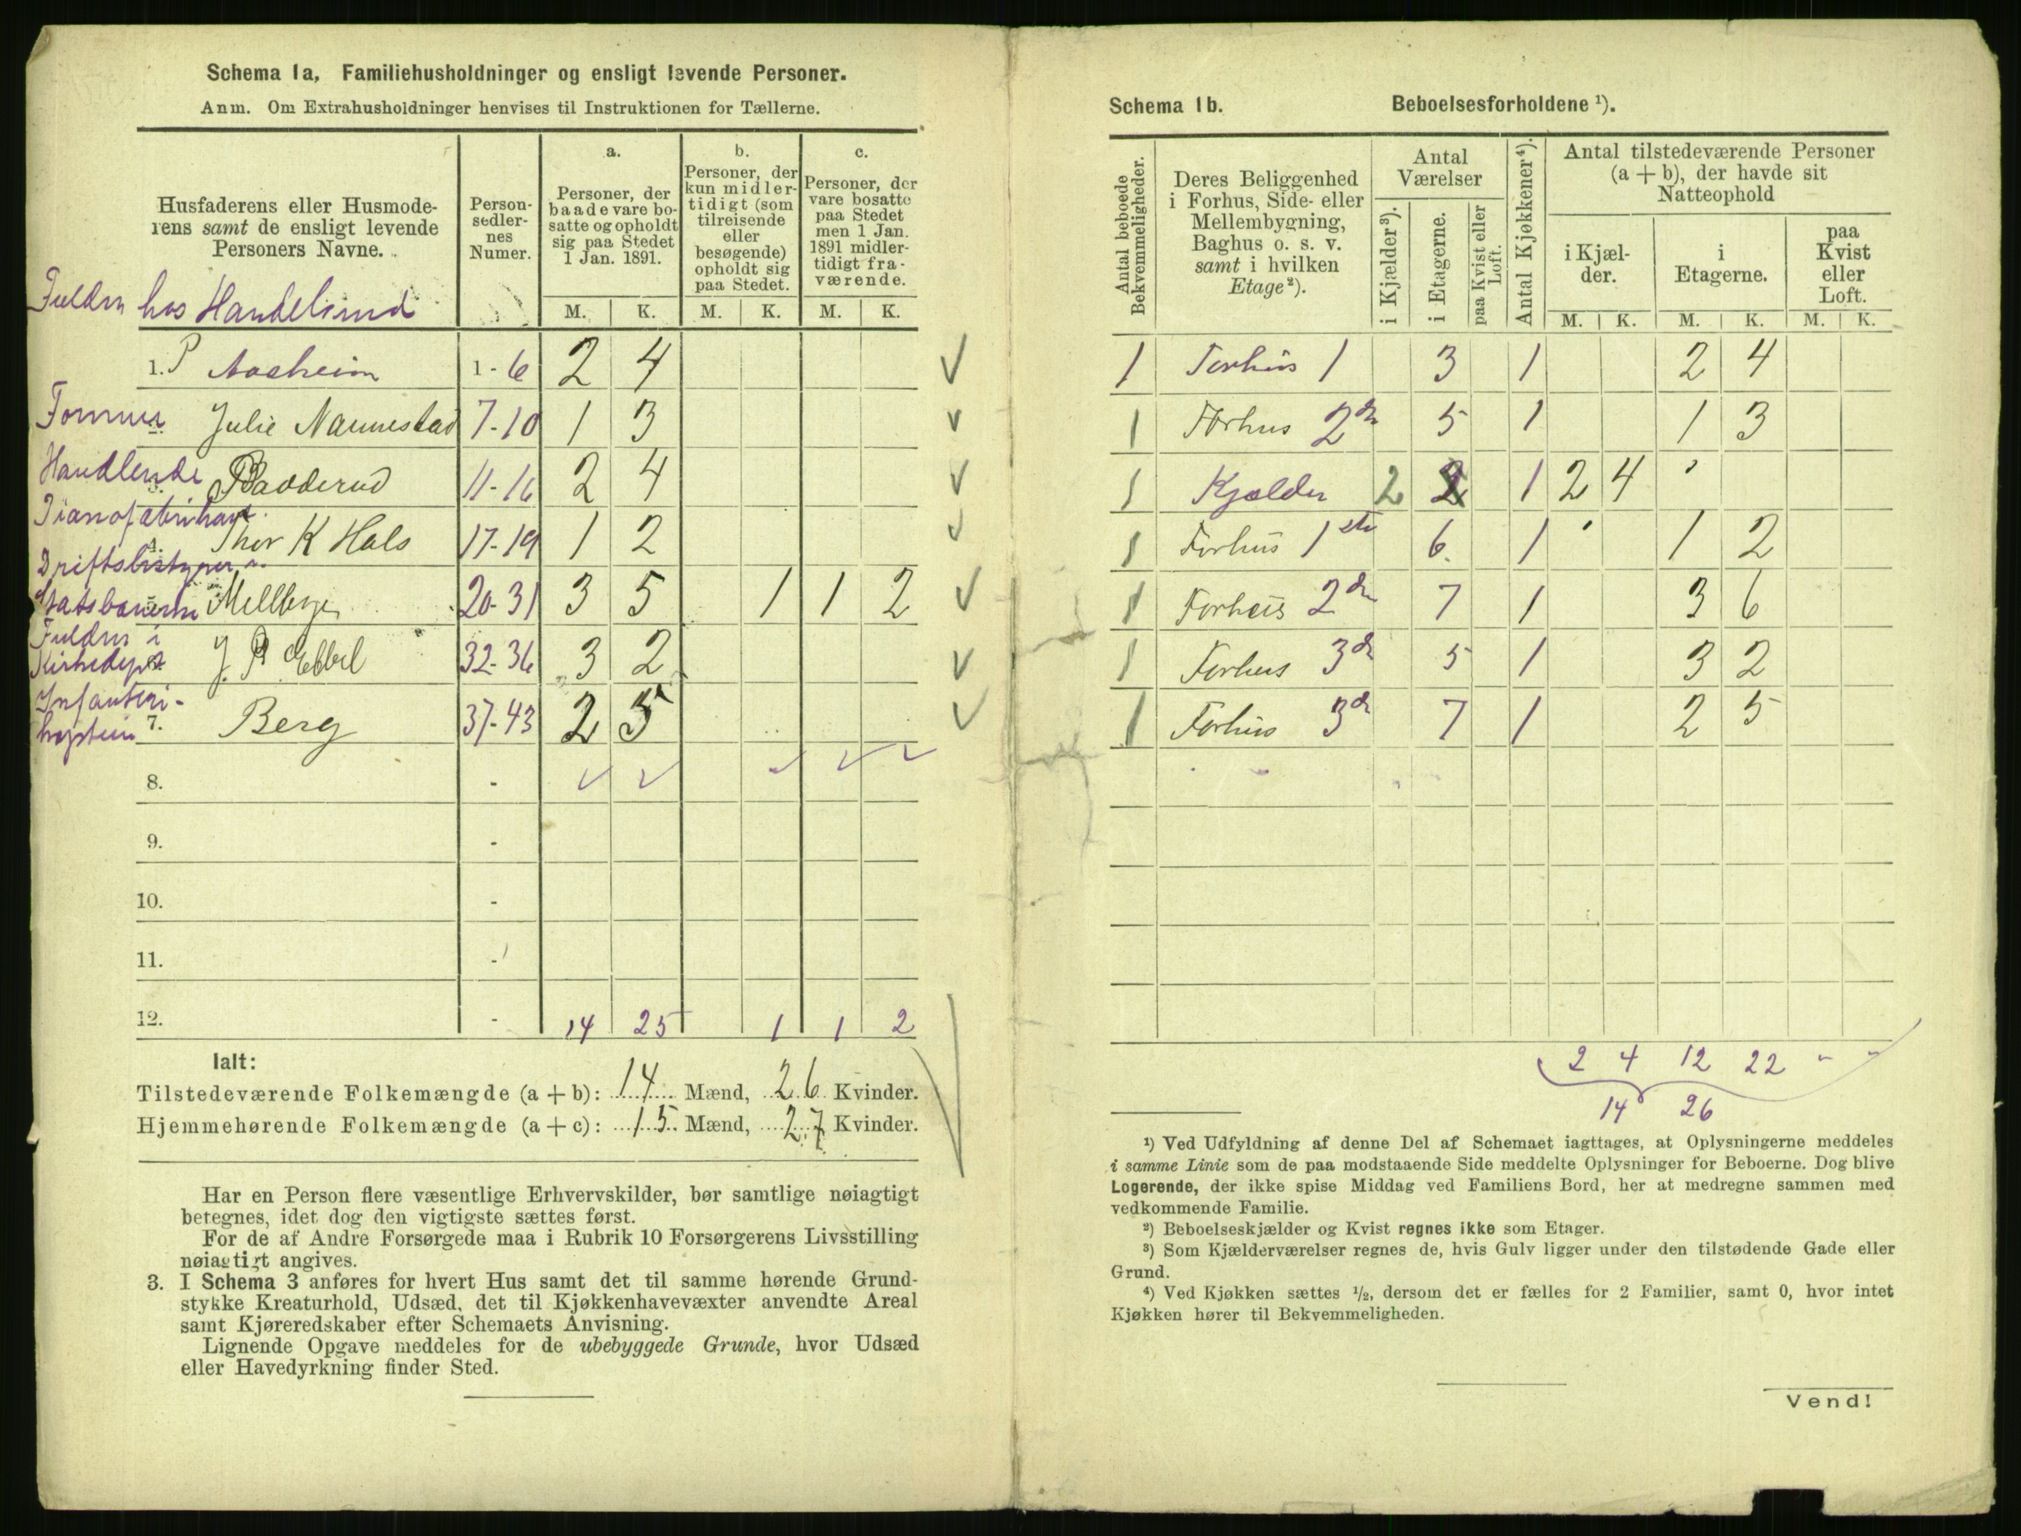 Schema 1a, Familiehusholdninger og ensligt levende Personer.
Anm. Om Extrahusholdninger henvises til Instruktionen for Tællerne.
Husfaderens eller Husmoderens samt de ensligt levende Personers Navne.
Person-sedler-nes Numer.
a.
Personer, der baade vare bosatte og opholdt sig paa Stedet 1 Jan. 1891.
b.
Personer, der kun midlertidigt (som tilreisende eller besøgende) opholdt sig paa Stedet.
c.
Personer, der vare bosatte paa Stedet men 1 Jan. 1891 midlertidigt fraværende.
M. K. M. K. M. K.
Fuldm hos Handelsmd
1. P Aasheim 1-6 2 4
Julie Nannestad 7-10 1 3
Handlende
3. Badderud 11-16 2 4
Pianofabrikant
4. Thor K Hals 17-19 1 2
Statsbanerne Mellbye 20-31 3 5 1 1 2
Fuldm i
Kirkedept J. P. Ebbel 32-36 3 2
Infanteri-
kaptein 7. Berg 37-43 2 5
8. -
9. -
10. -
11. -
12. - 14 25 1 1 2
Ialt:
Tilstedeværende Folkemængde (a + b): 14 Mænd, 26 Kvinder.
Hjemmehørende Folkemængde (a + c): 15 Mænd, 27 Kvinder.
Har en Person flere væsentlige Erhvervskilder, bør samtlige nøiagtigt
betegnes, idet dog den vigtigste sættes først.
For de af Andre Forsørgede maa i Rubrik 10 Forsørgerens Livsstilling
nøiagtigt angives.
3. I Schema 3 anføres for hvert Hus samt det til samme hørende Grund-
stykke Kreaturhold, Udsæd, det til Kjøkkenhavevæxter anvendte Areal
samt Kjøreredskaber efter Schemaets Anvisning.
Lignende Opgave meddeles for de ubebyggede Grunde, hvor Udsæd
eller Havedyrkning finder Sted.
Schema 1b. Beboelsesforholdene ¹).
Antal beboede Bekvemmeligheder.
Deres Beliggenhed i Forhus, Side- eller Mellembygning, Baghus o. s. v. samt i hvilken Etage²).
Antal Værelser
i Kjælder³).
i Etagerne.
paa Kvist eller Loft.
Antal Kjøkkener⁴).
Antal tilstedeværende Personer (a + b), der havde sit Natteophold
i Kjælder.
i Etagerne.
paa Kvist eller Loft.
M. K. M. K. M. K.
1 Forhus 1 3 1 2 4
1 Forhus 2den 5 1 1 3
1 Kjælder 2 2 1 2 4
1 Forhus 1ste 6 1 1 2
1 Forhus 2den 7 1 3 6
1 Forhus 3die 5 1 3 2
1 Forhus 3die 7 1 2 5
2 4 12 22 - -
14 26
¹) Ved Udfyldning af denne Del af Schemaet iagttages, at Oplysningerne meddeles
i samme Linie som de paa modstaaende Side meddelte Oplysninger for Beboerne. Dog blive
Logerende, der ikke spise Middag ved Familiens Bord, her at medregne sammen med
vedkommende Familie.
²) Beboelseskjælder og Kvist regnes ikke som Etager.
³) Som Kjælderværelser regnes de, hvis Gulv ligger under den tilstødende Gade eller
Grund.
⁴) Ved Kjøkken sættes ½, dersom det er fælles for 2 Familier, samt 0, hvor intet
Kjøkken hører til Bekvemmeligheden.
Vend!